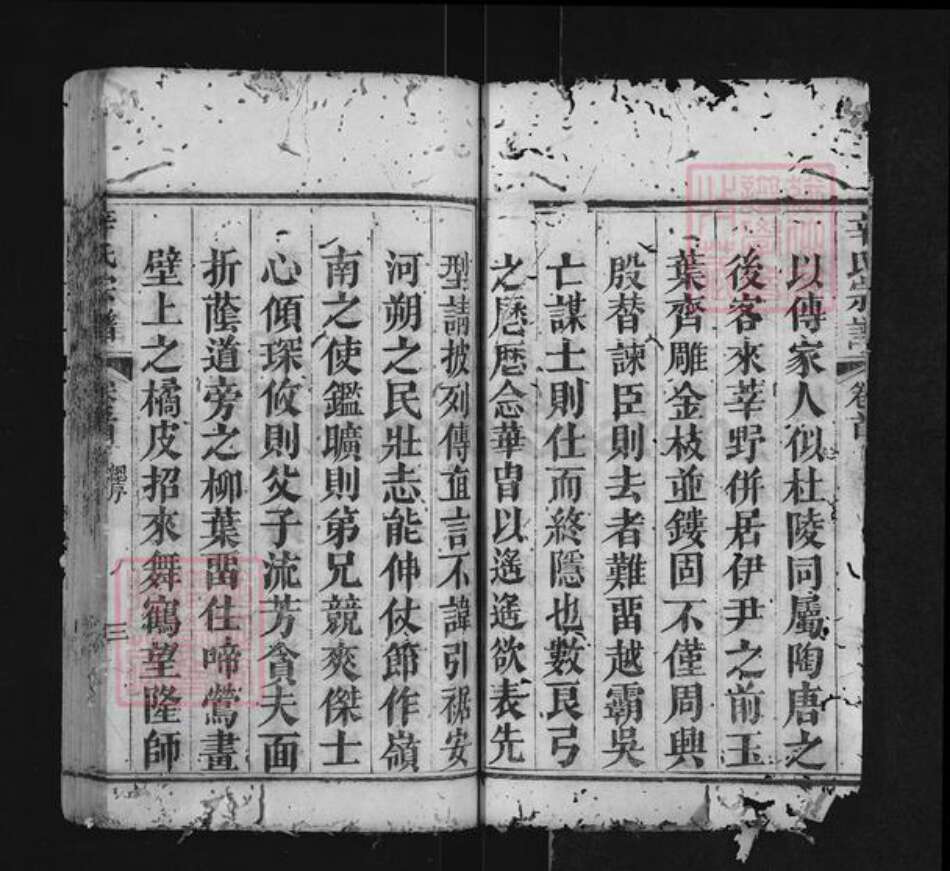 辛氏宗譜
卷首
以傳家人似杜陵同屬陶唐之
後客來莘野併居伊尹之前玉
葉齊雕金枝並鏤固不僅周興
殷替諫臣則去者難畱越霸吳
亡謀士則仕而終隱也數艮弓
之歷歷念華冑以遙遙欲表先
型請披列傳直言不諱引裾安
河朔之民壯志能伸仗節作嶺
南之使鑑曠則第兄競爽傑士
心傾琛攸則父子流芳貪夫面
折蔭道旁之柳葉畱住啼鶯畫
壁上之橘皮招來舞鶴望隆師
辛氏宗譜
卷首
序
三